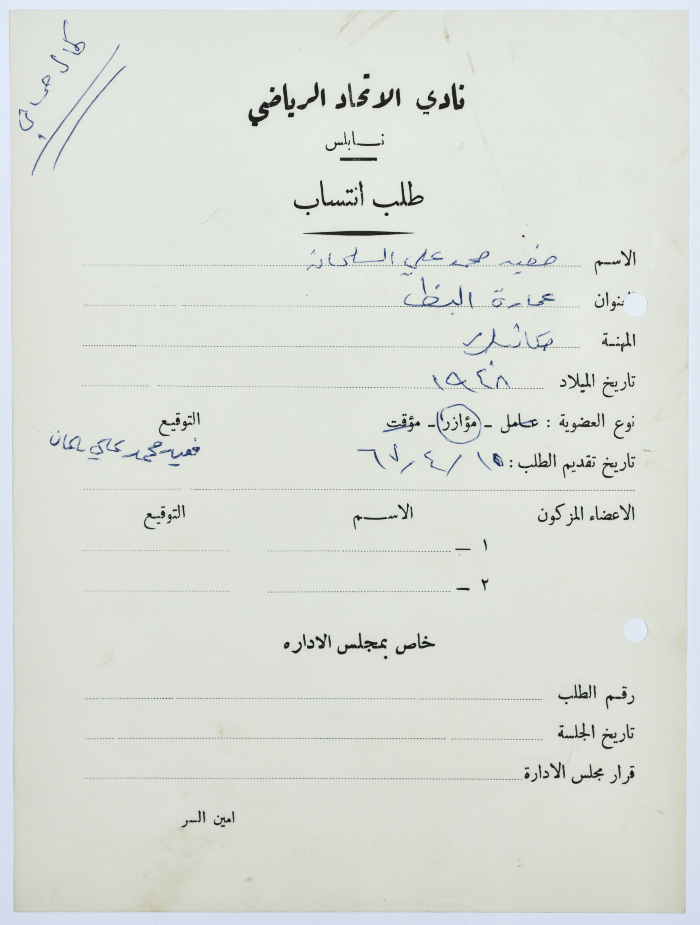 كمال
نادي الاتحاد الرياضي
نابلس
طلب انتساب
الاسم محمد علي
العنوان عمارة البنك
المهنة
تاريخ الميلاد ١٩٤٨
نوع العضوية : عامل - مؤازر - مؤقت التوقيع
تاريخ تقديم الطلب : ١٥ / ٤ / ٦٧ محمد علي
الاعضاء المزكون الاسم التوقيع
١ —
٢ —
خاص بمجلس الاداره
رقم الطلب
تاريخ الجلسة
قرار مجلس الادارة
امين السر